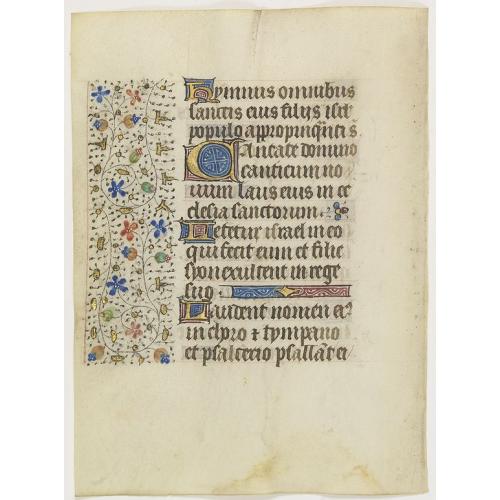 Hymnus omnibus
sanctis eius filijs isrl
populo appropinqnti s.
Cantate domino
canticum no
uum laus eius in ec
clesia sanctorum.
Letetur israel in eo
qui fecit eum et filie
syon exultent in rege
suo.
Laudent nomen ei9
in choro ⁊ tympano
et psalterio psallāt ei